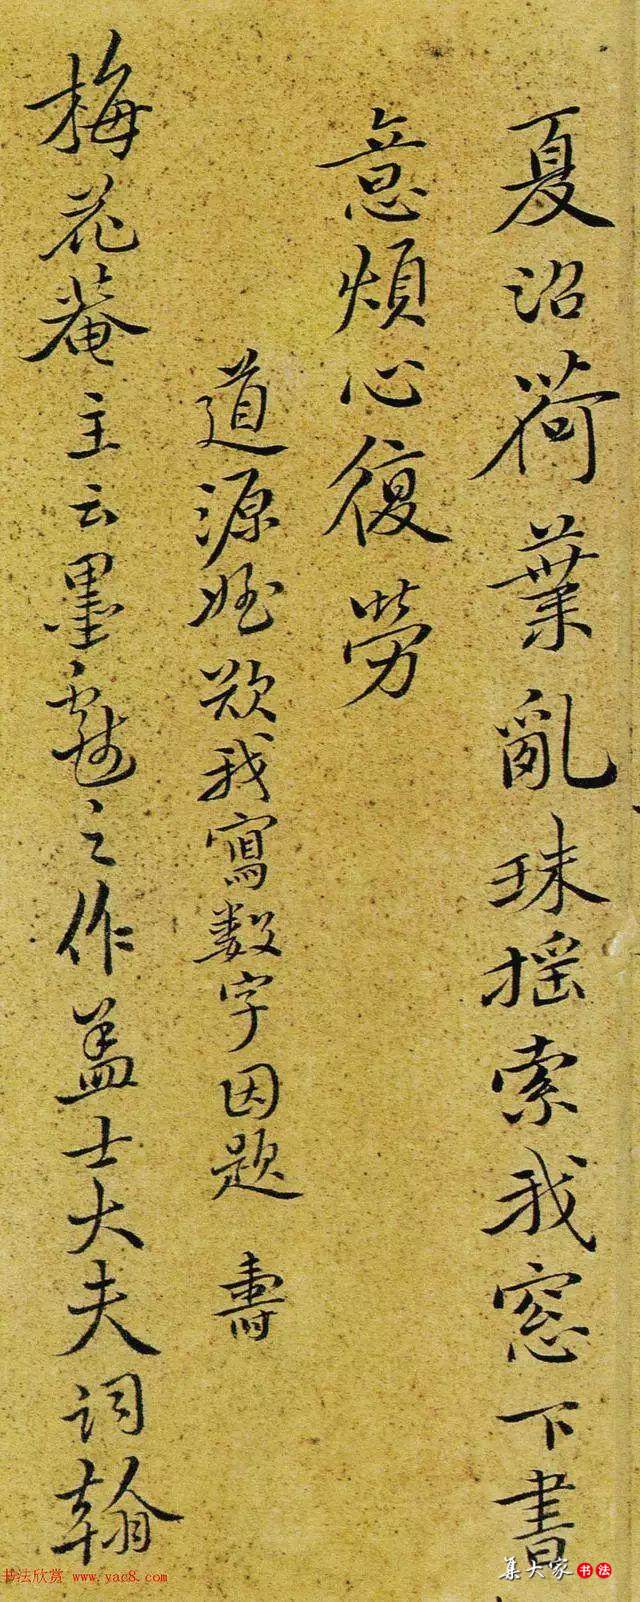 夏沼荷葉亂珠搖索我窓下書
意煩心復勞
道源姪欲我寫数字因題 壽
梅花菴主云墨戲之作盖士大夫詞翰
书法欣赏 www.yac8.com
集大家书法